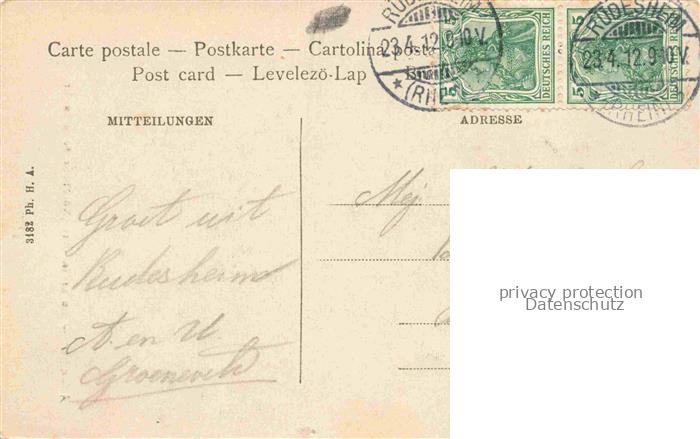 Carte postale — Postkarte — Cartolina posta
Post card — Levelező-Lap
RÜDESHEIM
23.4.12.9-10V.
(RHEIN)
DEUTSCHES REICH
5
5
RÜDESHEIM
23.4.12.9-10V.
(RHEIN)
MITTEILUNGEN
ADRESSE
3182 Ph. H. A.
Groet uit
Rudesheim
A. en
Groeneveld
Mej
privacy protection
Datenschutz